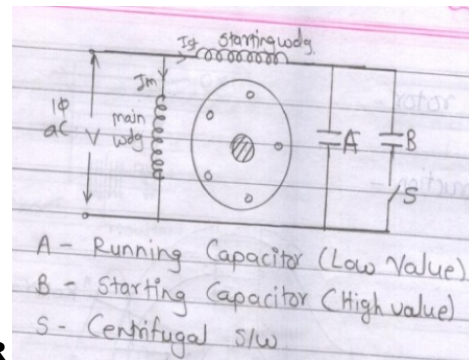 Ist starting wdg.
Im
1φ
ac V
main
wdg
A
B
S
A - Running Capacitor (Low Value)
B - Starting Capacitor (High value)
S - Centrifugal S/W
R